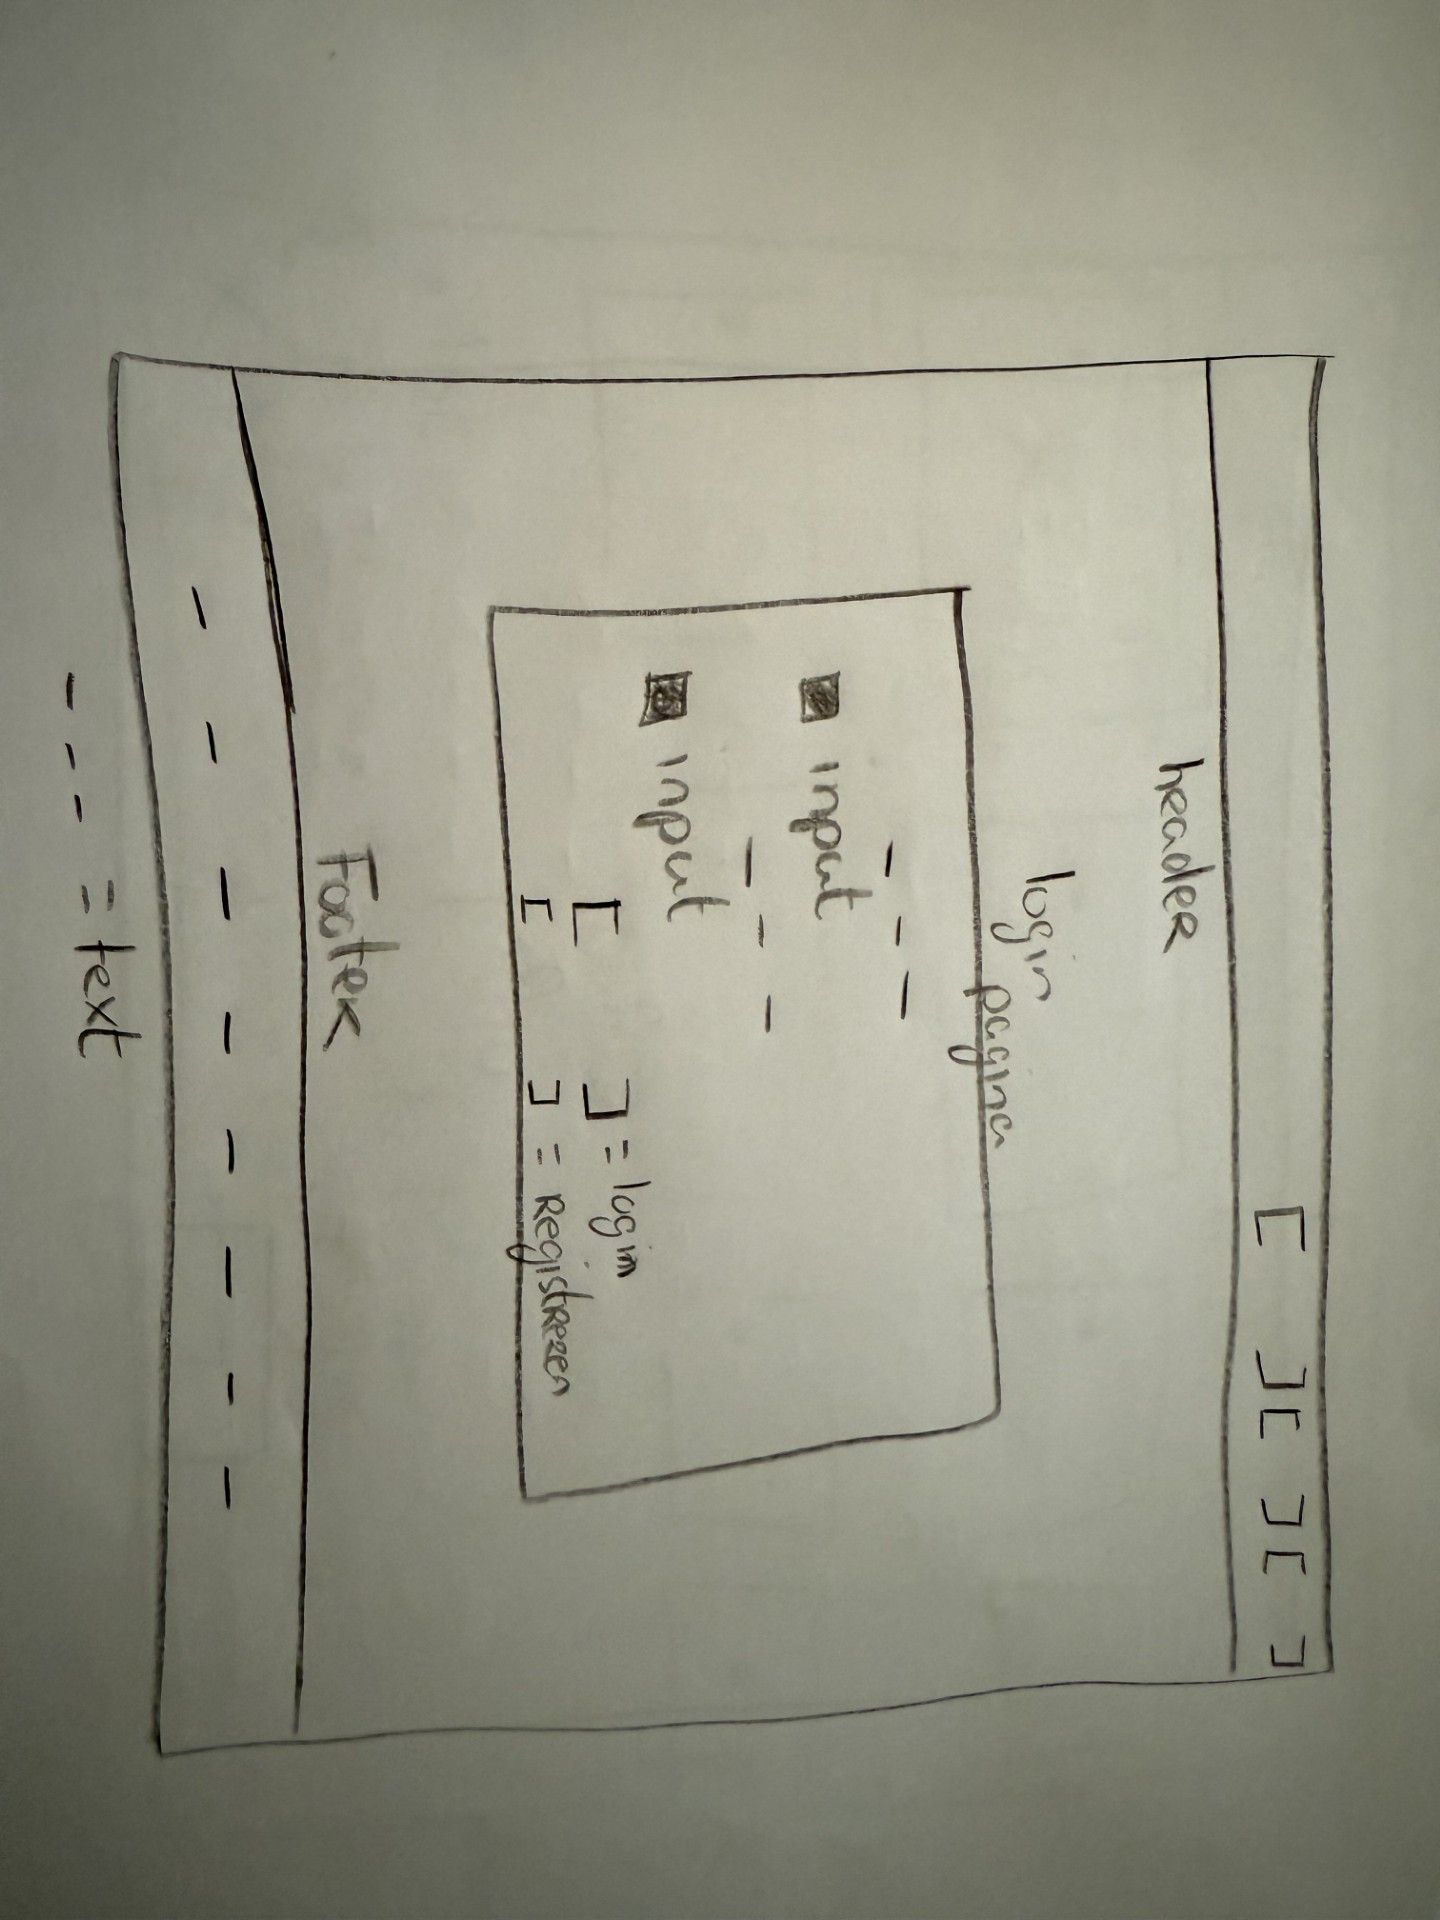 [ ] [ ] [ ]
header
login
pagina
- - -
input
- - -
input
[ ] = login
[ ] = Registreren
Footer
- - - - - - - -
- - - = text